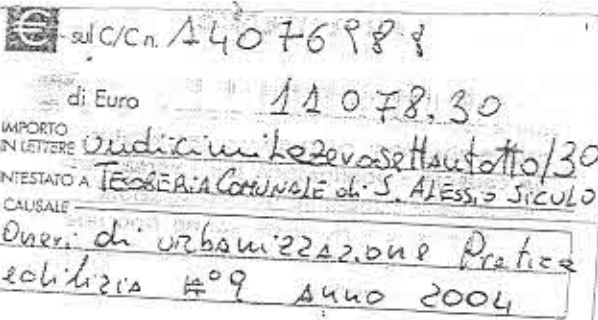 € sul C/C n. 14076988
di Euro 11078,30
IMPORTO IN LETTERE Undicimilazerosettantotto/30
INTESTATO A TESORERIA COMUNALE di S. ALESSIO SICULO
CAUSALE
Oneri di urbanizzazione Pratica
edilizia n°9 Anno 2004